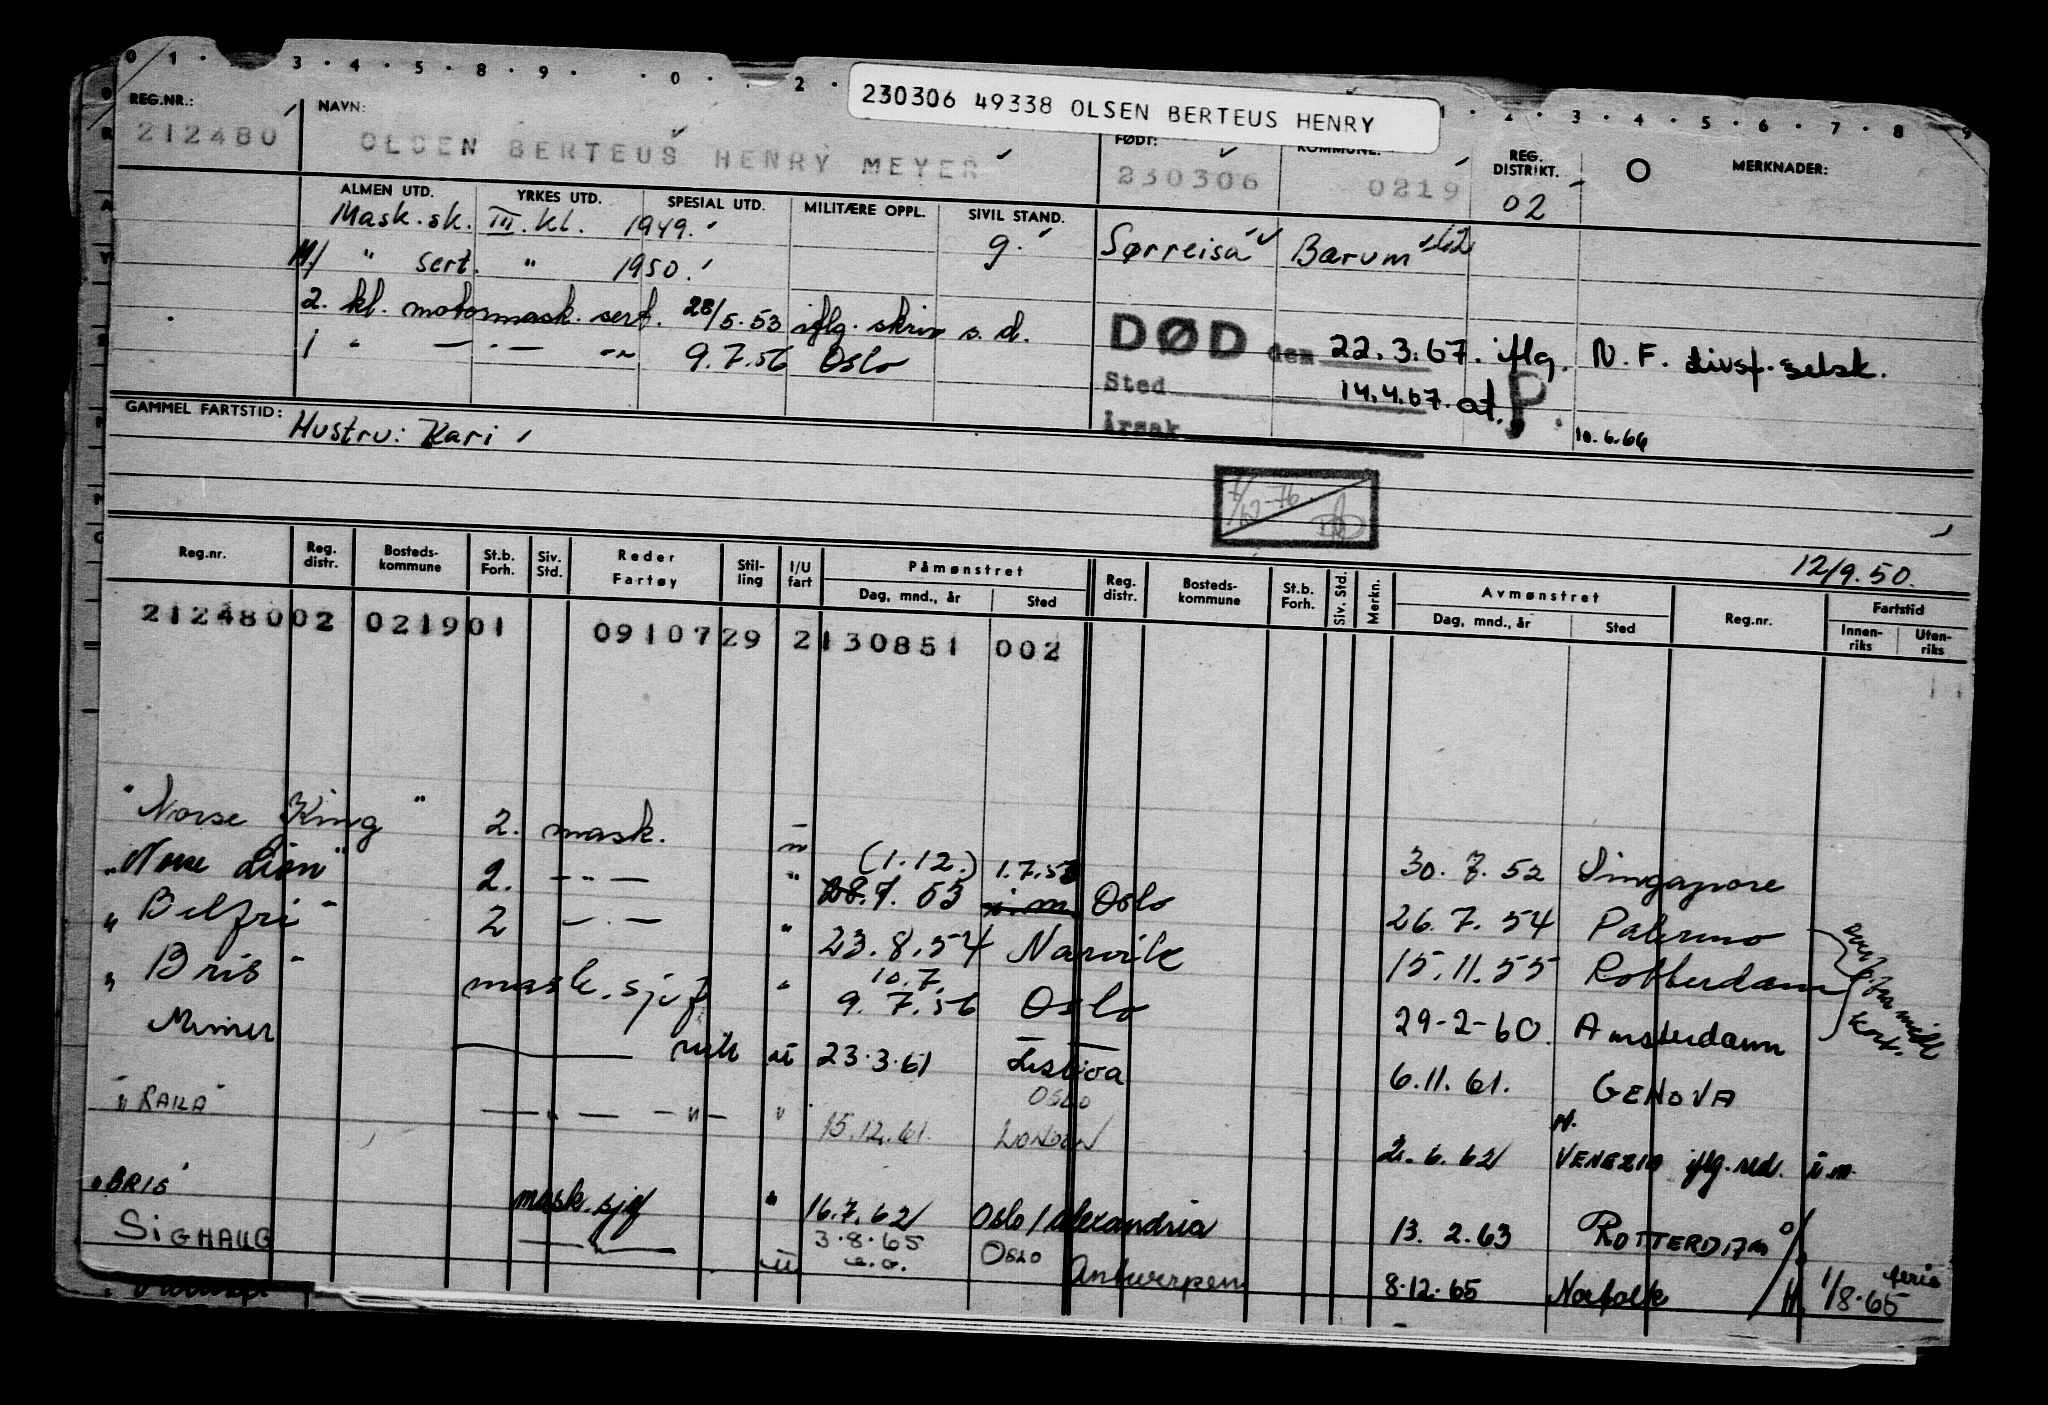 0 1 · 3 · 4 · 5 · 8 · 9 · · 0 · · 2 · 1 · 2 · 3 · 4 · 5 · 6 · 7 · 8 9
230306 49338 OLSEN BERTEUS HENRY
REG.NR.: NAVN: FØDT: KOMMUNE: REG. DISTRIKT. MERKNADER:
212480 OLSEN BERTEUS HENRY MEYER 230306 0219 02
ALMEN UTD. YRKES UTD. SPESIAL UTD. MILITÆRE OPPL. SIVIL STAND.
Mask.sk. III.kl. 1949. g. Sørreisa Bærum
M/ " sert. " 1950.
2. kl. motormask. sert. 28/5.53 iflg. skriv s.d.
1 " — " — 9.7.56 Oslo
DØD den 22.3.67. iflg. N.F. livsf. selsk.
Sted 14.4.67. at. P.
Årsak 10.6.66
GAMMEL FARTSTID: Hustru: Kari
7/12-76
12/9.50.
Reg.nr. Reg. distr. Bosteds-kommune St.b. Forh. Siv. Std. Reder Fartøy Stil-ling I/U fart Påmønstret Dag, mnd., år Sted Reg. distr. Bosteds-kommune St.b. Forh. Siv. Std. Merkn. Avmønstret Dag, mnd., år Sted Reg.nr. Fartstid Innen-riks Uten-riks
21248002 021901 0910729 2130851 002
"Norse King" 2. mask. u (1.12.) 1.7.52 30.7.52 Singapore
"Norse Lion" 2. — " — " 28.7.53 Oslo 26.7.54 Palermo
"Belfri" 2 — " — " 23.8.54 Narvik 15.11.55 Rotterdam
"Bris" mask.sjef " 10.7. 9.7.56 Oslo 29-2-60. Amsterdam
Mimer — u 23.3.61 Lisboa 6.11.61. GENOVA
"RAILA" — " — — " — " 15.12.61. OSLO LONDON 2.6.62 VENEZIA iflg. red. i.m.
"BRIS" mask.sjef " 16.7.62 Oslo / Alexandria 13.2.63 ROTTERDAM
SIGHAUG — " — u 3.8.65 OSLO Antwerpen 8.12.65 Norfolk 1/8.65 ferie